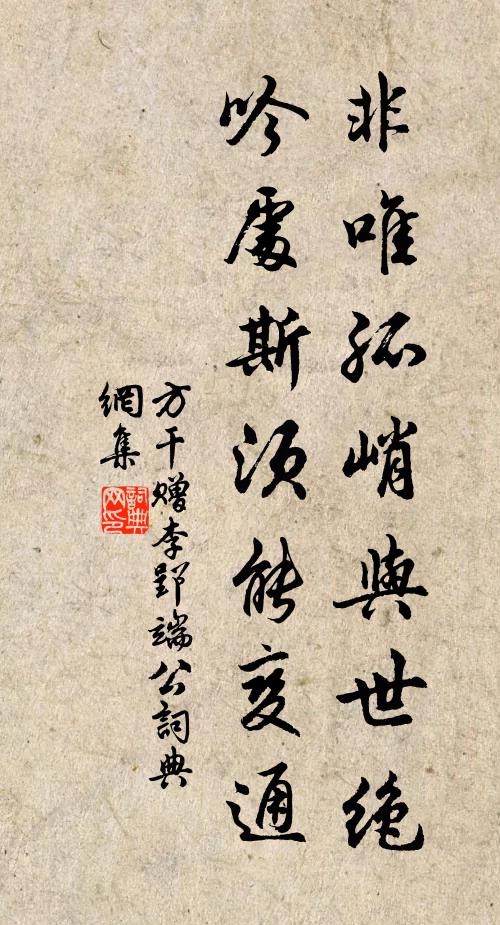 非唯孤峭與世絕
吟處斯須能變通
方干贈李郢端公詞典
網集
詞典
网印